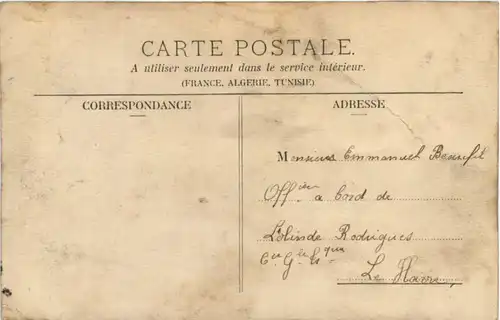 CARTE POSTALE.
A utiliser seulement dans le service intérieur.
(FRANCE, ALGERIE, TUNISIE)
CORRESPONDANCE
ADRESSE
Monsieur Emmanuel
Off.ier a bord de
Olinde Rodrigues
Cie Gle
Le Havre